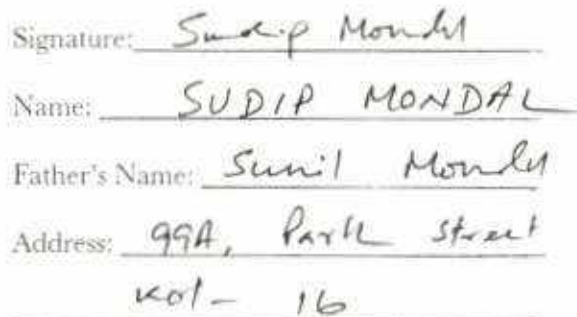 Signature: Sudip Mondal
Name: SUDIP MONDAL
Father's Name: Sunil Mondal
Address: 99A, Park Street
Kol- 16